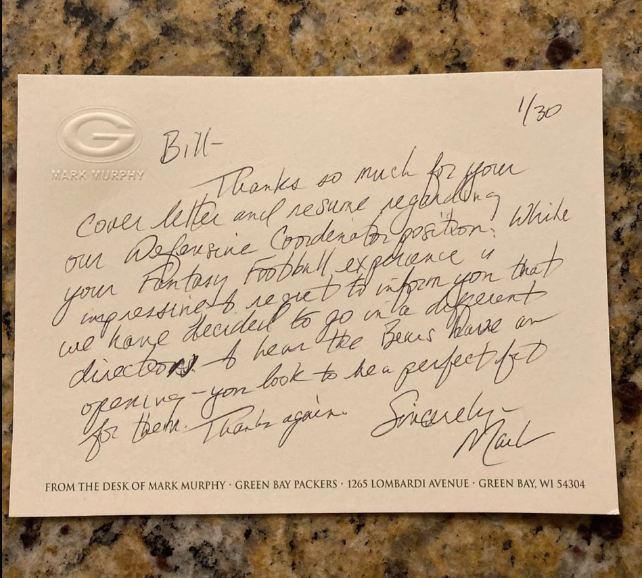 G
MARK MURPHY
1/30
Bill-
Thanks so much for your
cover letter and resume regarding
our Defensive Coordinator position. While
your Fantasy Football experience is
impressive I regret to inform you that
we have decided to go in a different
direction. I hear the Bears have an
opening - you look to be a perfect fit
for them. Thanks again.
Sincerely-
Mark
FROM THE DESK OF MARK MURPHY · GREEN BAY PACKERS · 1265 LOMBARDI AVENUE · GREEN BAY, WI 54304